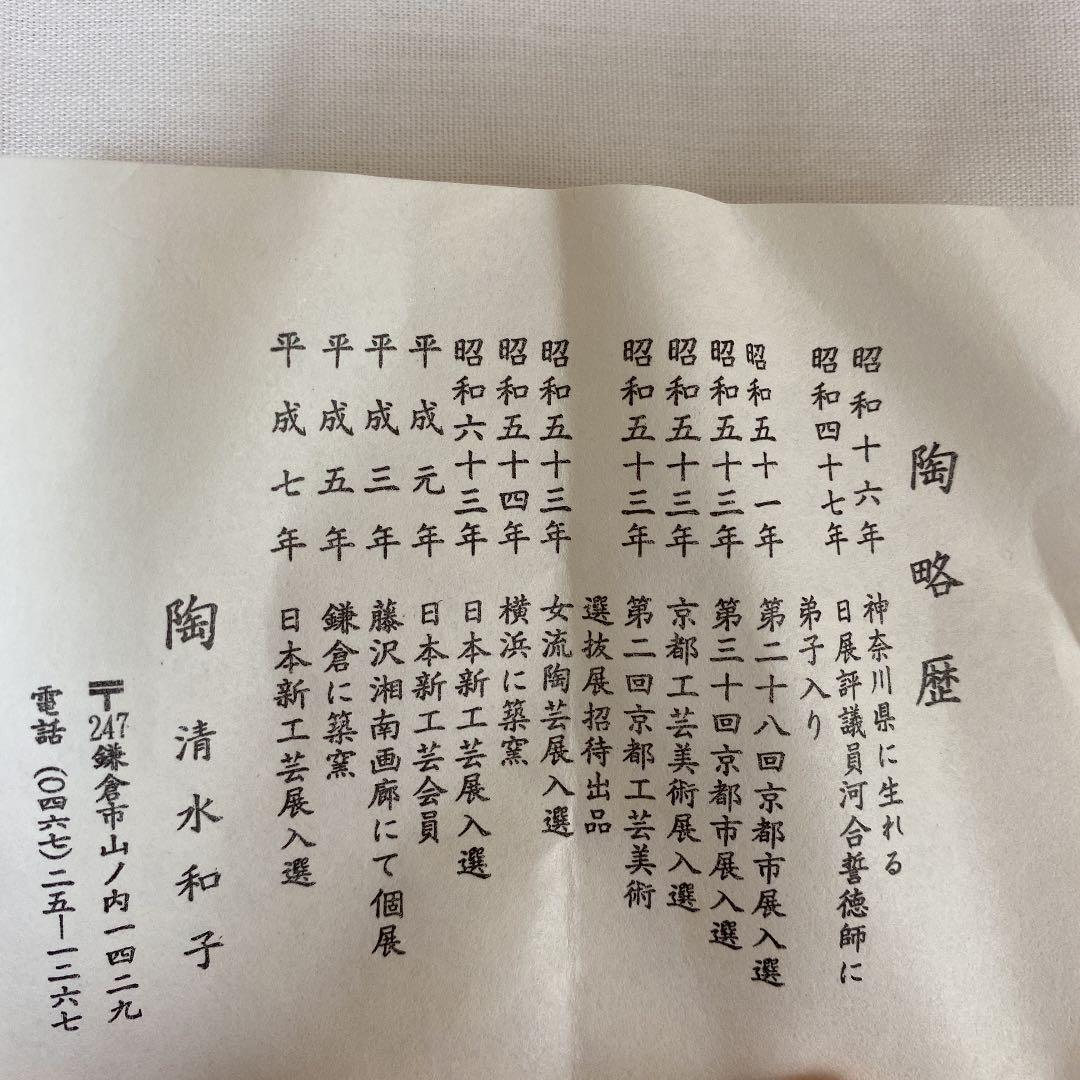 陶略歴
昭和十六年 神奈川県に生れる
昭和四十七年 日展評議員河合誓徳師に
弟子入り
昭和五十一年 第二十八回京都市展入選
昭和五十三年 第三十回京都市展入選
昭和五十三年 京都工芸美術展入選
昭和五十三年 第二回京都工芸美術
選抜展招待出品
昭和五十三年 女流陶芸展入選
昭和五十四年 横浜に築窯
昭和六十三年 日本新工芸展入選
平成元年 日本新工芸会員
平成三年 藤沢湘南画廊にて個展
平成五年 鎌倉に築窯
平成七年 日本新工芸展入選
陶 清水和子
〒247鎌倉市山ノ内一四二九
電話(〇四六七)二五ー一二六七